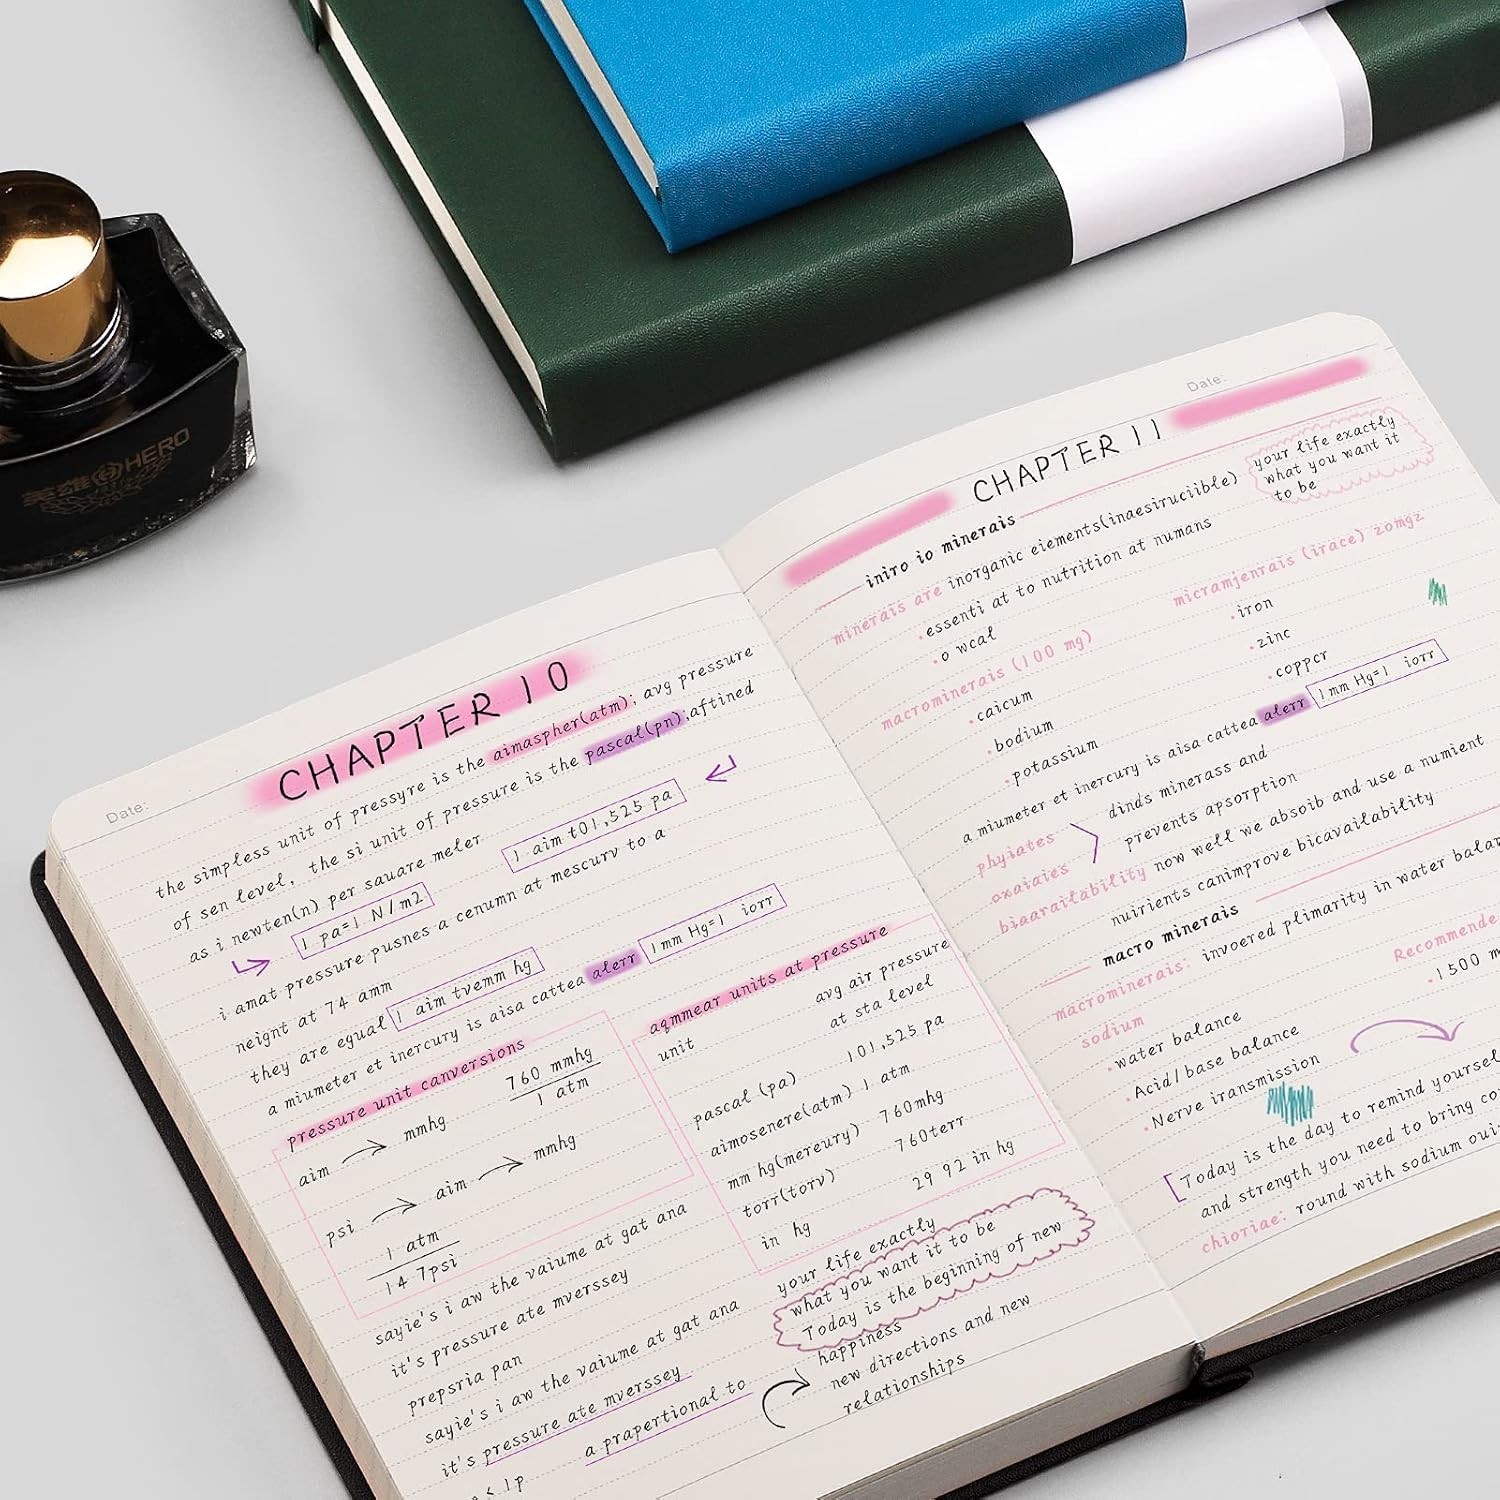 英雄 HERO
Date:
CHAPTER 10
the simpless unit of pressyre is the aimaspher(atm); avg pressure
of sen level, the si unit of pressure is the pascal(pn);aftined
as i newten(n) per sauare meler
1 aim t01,525 pa
1 pa=1 N/m2
i amat pressure pusnes a cenumn at mescurv to a
neignt at 74 amm
they are egual 1 aim tvemm hg
a miumeter et inercury is aisa cattea alerr 1mm Hg=1 iorr
pressure unit canversions
aim mmhg
760 mmhg
1 atm
psi aim mmhg
1 atm
14 7psi
aqmmear units at pressure
unit
avg air pressure
at sta level
pascal (pa) 101,525 pa
aimosenere(atm) 1 atm
mm hg(mereury) 760mhg
torr(torv) 760terr
in hg 29 92 in hg
sayie's i aw the vaiume at gat ana
it's pressure ate mverssey
prepsria pan
sayie's i aw the vaiume at gat ana
it's pressure ate mverssey
a prapertional to
< 1p
your life exactly
what you want it to be
Today is the beginning of new
happiness
new directions and new
relationships
Date:
CHAPTER 11
your life exactly
what you want it
to be
iniro io minerais
minerais are inorganic eiements(inaesiruciible)
essenti at to nutrition at numans
o wcal
macrominerais (100 mg)
caicum
bodium
potassium
micramjenrais (irace) zomgz
iron
zinc
coppcr
a miumeter et inercury is aisa cattea alerr 1mm Hg=1 iorr
phyiates
oxaiaies
dinds minerass and
prevents apsorption
biaarailability now well we absoib and use a numient
nuirients canimprove bicavailability
macro minerais
macrominerais: invoered plimarity in water
sodium
water balance
Acid/base balance
Nerve iransmission
1500
Today is the day to remind
and strength you need to bring
round with sodium
chioriae: